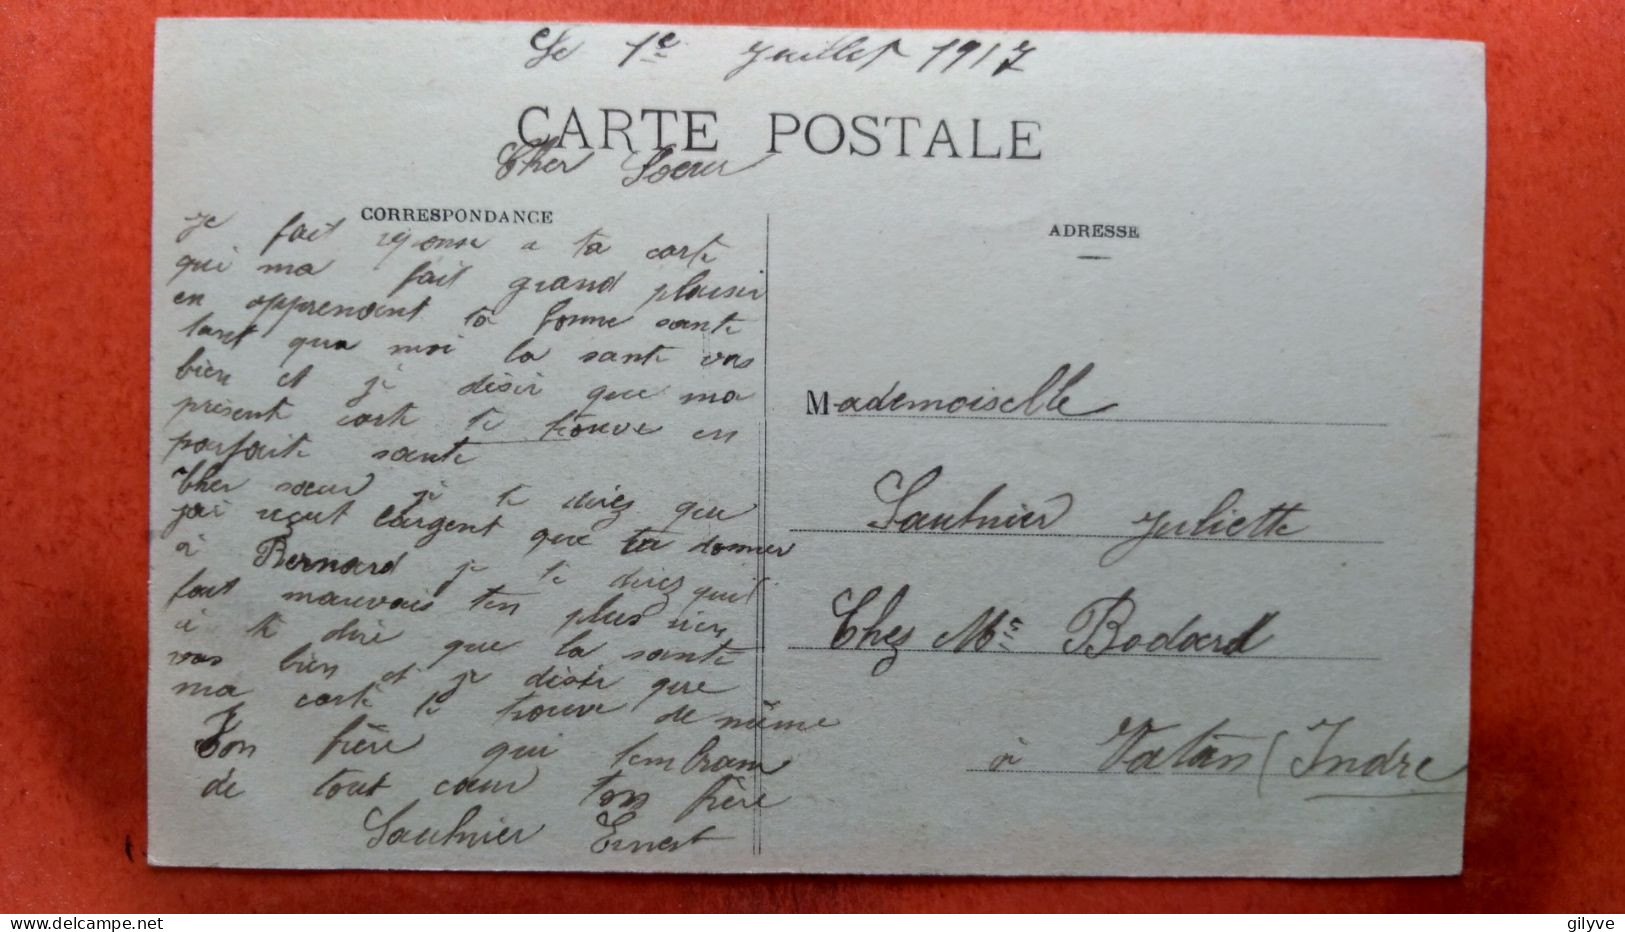 Le 1e Juillet 1917
CARTE POSTALE
Cher Soeur
CORRESPONDANCE
Je fait réponse a ta carte
qui ma fait grand plaisir
en apprenant ta bonne sante
tant qua moi la sante vas
bien et je désir que ma
présent carte te trouve en
parfaite sante
Cher sœur je te direz que
jai reçut largent que ta donner
à Bernard je te direz quil
fait mauvais ten plus rien
à te dire que la sante
vas bien et je désir que
ma carte te trouve de même
Ton frère qui tembrasse
de tout cœur ton frère
Saulnier Ernest
ADRESSE
Mademoiselle
Saulnier Juliette
Chez Mr Bodard
à Vatan (Indre
gilyve